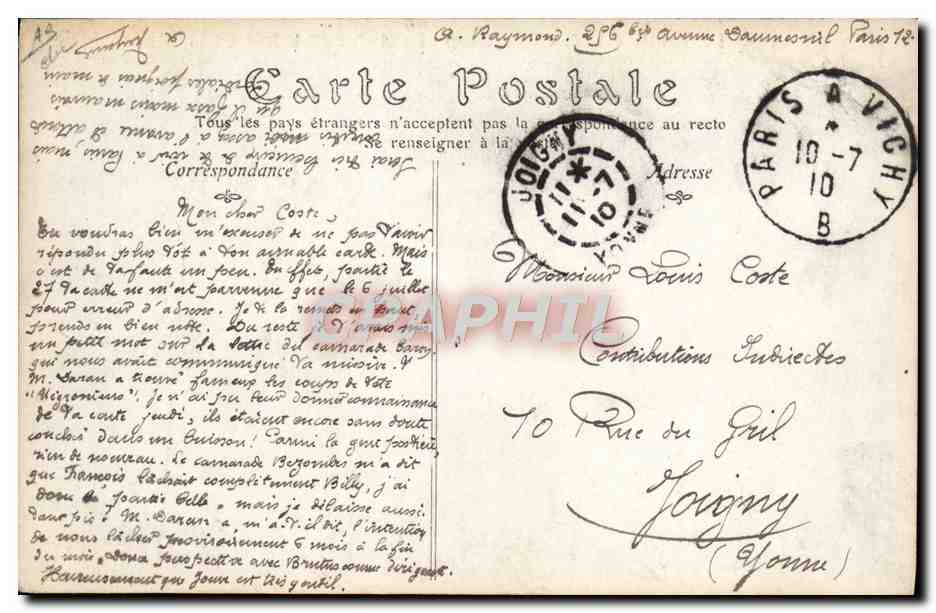 A. Raymond. 256 bis avenue Daumesnil Paris 12e
Carte Postale
Tous les pays étrangers n'acceptent pas la correspondance au recto
Se renseigner à la
Correspondance
Adresse
JOIGNY
11 * 11-7
10
YONNE
PARIS A VICHY
*
10 -7
10
B
Mon cher Coste,
Tu voudras bien m'excuser de ne pas t'avoir
répondu plus tôt à ton aimable carte. Mais
c'est de ta faute un peu. En effet, partie le
27 ta carte ne m'est parvenue que le 6 juillet
pour erreur d'adresse. Je te la remets
prends en bien note. Du reste je t'avais mis
un petit mot sur la lettre del camarade Barry
qui nous avait communiqué ta missive.
M. Daran a trouvé fameux les coups de tête
"Mignoniens". Je n'ai pu leur donner connaissance
de ta carte jeudi, ils étaient encore sans doute
couchés dans un buisson! Parmi la gent
rien de nouveau. Le camarade Bezombes m'a dit
que François lâchait complètement Billy, j'ai
donc la partie belle, mais je délaisse aussi.
M. Daran a, m'a-t-il dit, l'intention
de nous lâcher provisoirement 6 mois à la fin
du mois. Doux perspective avec Brutus comme dirigeant.
Heureusement que Jour est très gentil.
Monsieur Louis Coste
Contributions Indirectes
10 Rue du Gril
Joigny
(Yonne)
CPAPHIL